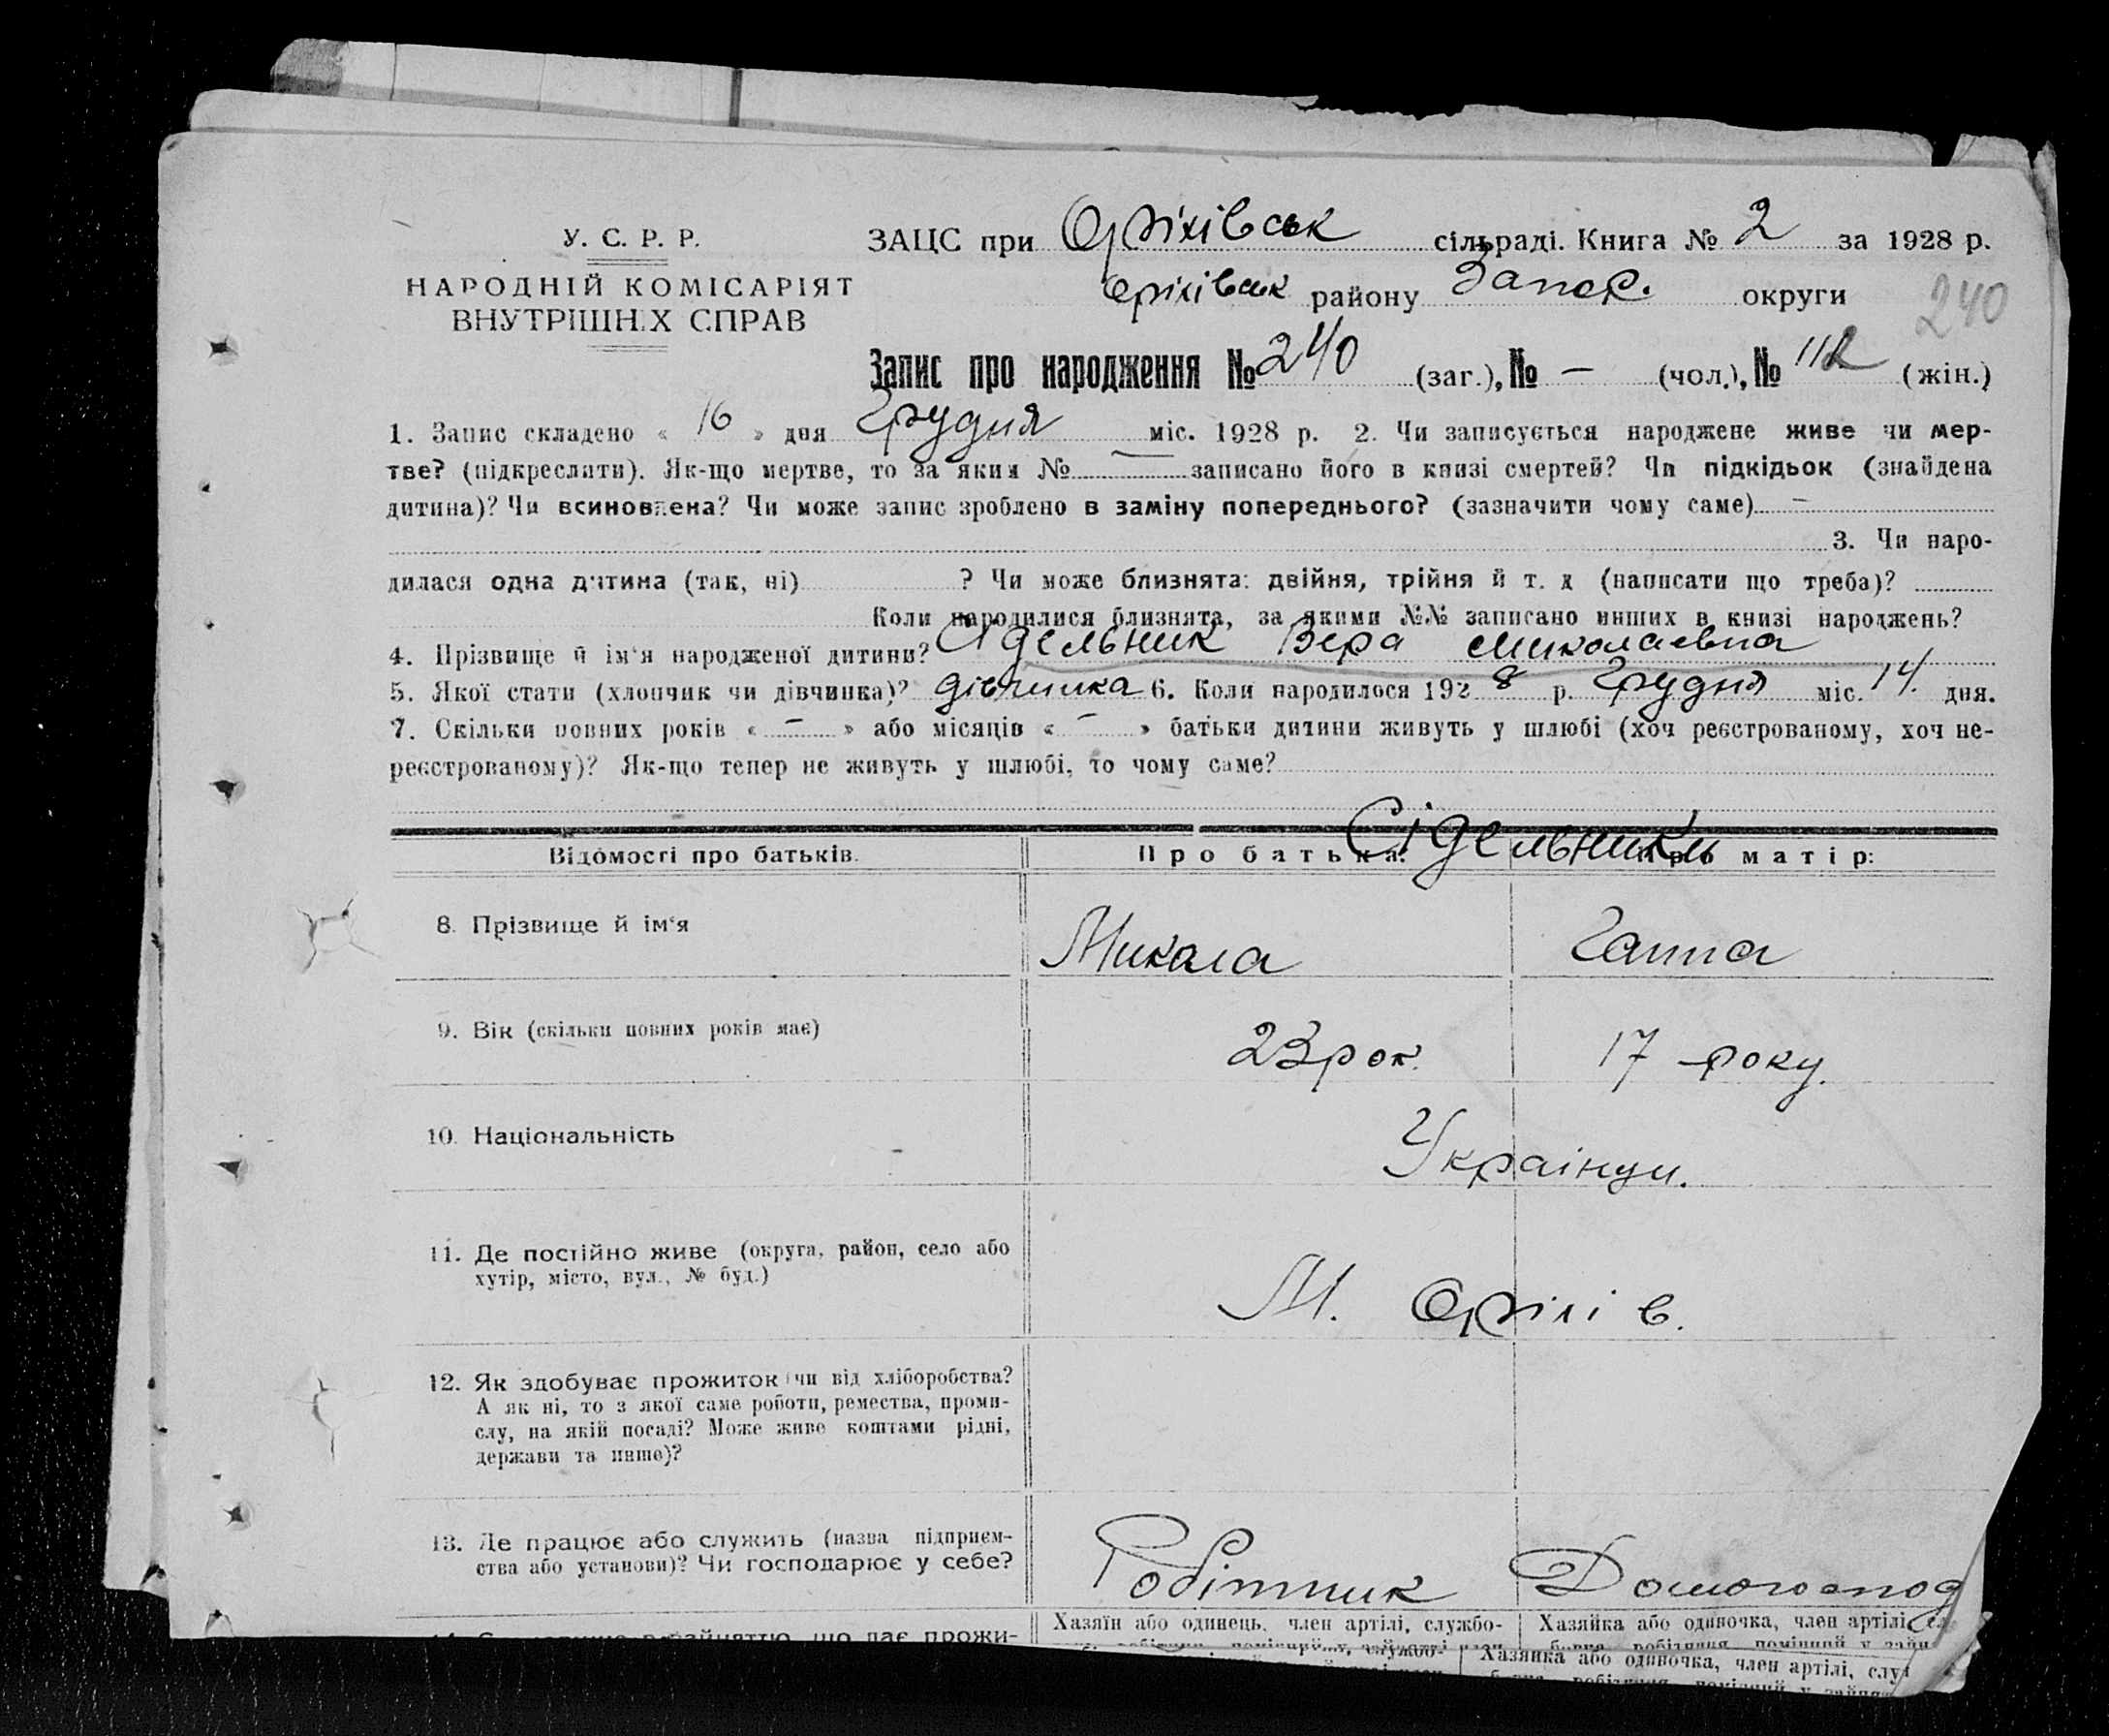 У. С. Р. Р.
НАРОДНІЙ КОМІСАРІЯТ
ВНУТРІШНІХ СПРАВ
ЗАЦС при Оріхівськ сільраді. Книга № 2 за 1928 р.
Оріхівськ району Запор. округи
240
Запис про народження № 240 (заг.), № — (чол.), № 112 (жін.)
1. Запис складено « 16 » дня Грудня міс. 1928 р. 2. Чи записується народжене живе чи мер-
тве? (підкреслити). Як-що мертве, то за яким № — записано його в книзі смертей? Чи підкідьок (знайдена
дитина)? Чи всиновлена? Чи може запис зроблено в заміну попереднього? (зазначити чому саме) —
3. Чи наро-
дилася одна дитина (так, ні) ? Чи може близнята: двійня, трійня й т. д (написати що треба)?
Коли народилися близнята, за якими №№ записано инших в книзі народжень?
4. Прізвище й ім‘я народженої дитини? Сідельник Вера Миколаевна
5. Якої стати (хлопчик чи дівчинка)? дівчинка 6. Коли народилося 1928 р. Грудня міс. 14. дня.
7. Скільки повних років « — » або місяців « — » батьки дитини живуть у шлюбі (хоч реєстрованому, хоч не-
реєстрованому)? Як-що тепер не живуть у шлюбі, то чому саме?
Відомості про батьків. Про батька: Про матір:
Сідельники
8. Прізвище й ім‘я Микола Ганна
9. Вік (скільки повних років має) 23 рок. 17 року.
10. Національність Украінци.
11. Де постійно живе (округа, район, село або
хутір, місто, вул., № буд.)
М. Оріхів.
12. Як здобуває прожиток (чи від хліборобства?
А як ні, то з якої саме роботи, ремества, проми-
слу, на якій посаді? Може живе коштами рідні,
держави та инше)?
13. Де працює або служить (назва підприєм-
ства або установи)? Чи господарює у себе?
Робітник Домогоспод
Хазяїн або одинець, член артілі, службо- Хазяйка або одиночка, член артілі
Хазяйка або одиночка, член артілі, слу